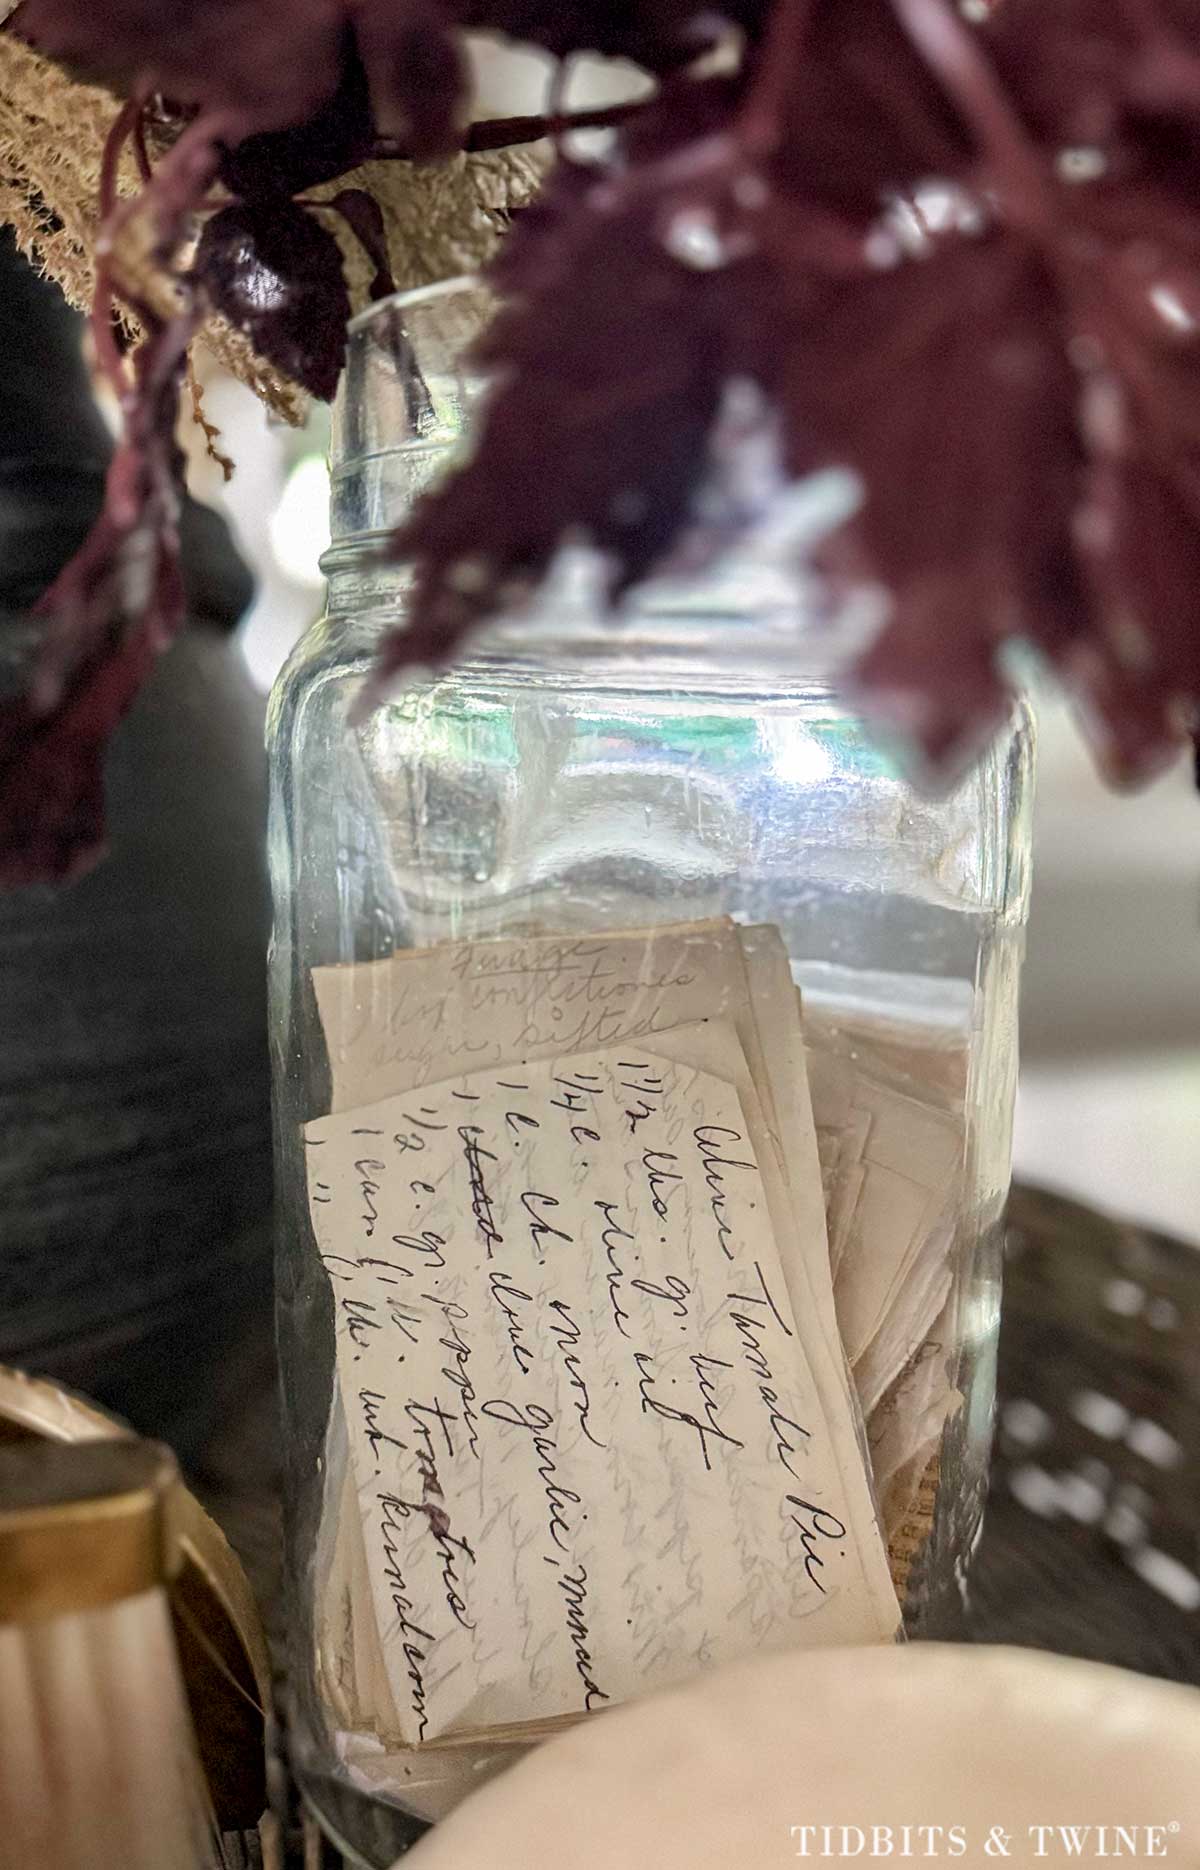 orange
confectioners
sugar, sifted
Olive Tamale Pie
1 1/2 lbs. gr. beef
1/4 c. olive oil
1 c. ch. onion
1 clove garlic, minced
1/2 c. gr. pepper
1 can (1 lb. tomatoes
1 " () lb. wh. kernal corn
TIDBITS & TWINE®